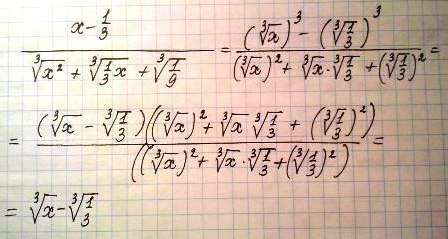 \frac{x - \frac{1}{3}}{\sqrt[3]{x^2} + \sqrt[3]{\frac{1}{3}x} + \sqrt[3]{\frac{1}{9}}} = \frac{(\sqrt[3]{x})^3 - (\sqrt[3]{\frac{1}{3}})^3}{(\sqrt[3]{x})^2 + \sqrt[3]{x} \cdot \sqrt[3]{\frac{1}{3}} + (\sqrt[3]{\frac{1}{3}})^2} =
= \frac{(\sqrt[3]{x} - \sqrt[3]{\frac{1}{3}})((\sqrt[3]{x})^2 + \sqrt[3]{x} \sqrt[3]{\frac{1}{3}} + (\sqrt[3]{\frac{1}{3}})^2)}{((\sqrt[3]{x})^2 + \sqrt[3]{x} \cdot \sqrt[3]{\frac{1}{3}} + (\sqrt[3]{\frac{1}{3}})^2)} =
= \sqrt[3]{x} - \sqrt[3]{\frac{1}{3}}